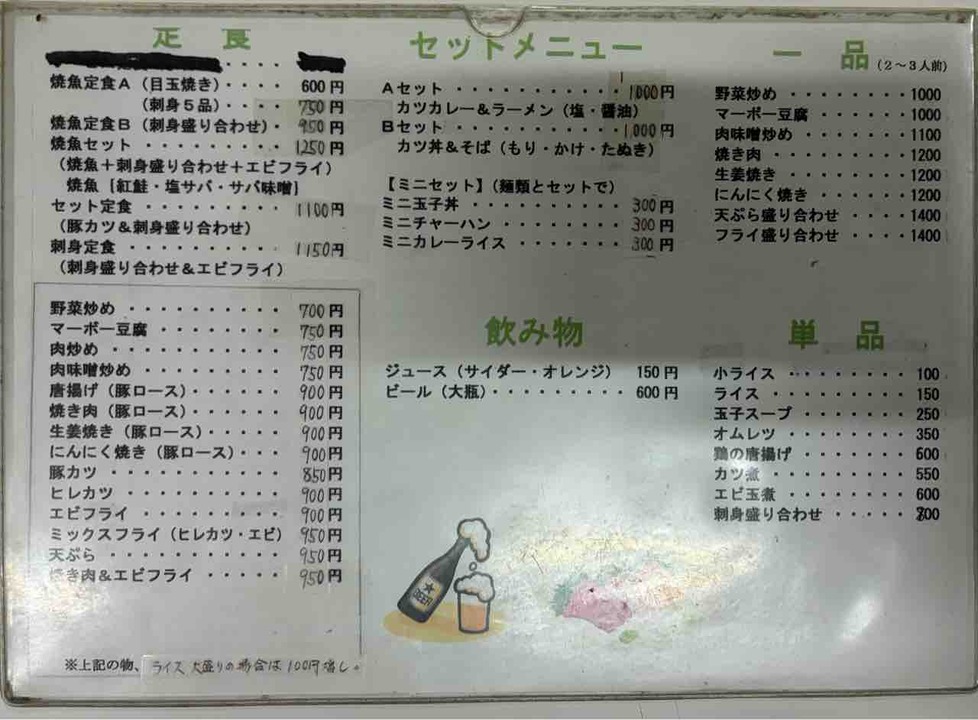 定食
焼魚定食A（目玉焼き）・・・・ 600円
（刺身５品）・・・・ 750円
焼魚定食B（刺身盛り合わせ）・ 950円
焼魚セット・・・・・・・・・ 1250円
（焼魚＋刺身盛り合わせ＋エビフライ）
焼魚［紅鮭・塩サバ・サバ味噌］
セット定食・・・・・・・・・ 1100円
（豚カツ＆刺身盛り合わせ）
刺身定食・・・・・・・・・・ 1150円
（刺身盛り合わせ＆エビフライ）
野菜炒め・・・・・・・・・・ 700円
マーボー豆腐・・・・・・・・ 750円
肉炒め・・・・・・・・・・・ 750円
肉味噌炒め・・・・・・・・・ 750円
唐揚げ（豚ロース）・・・・・ 900円
焼き肉（豚ロース）・・・・・ 900円
生姜焼き（豚ロース）・・・・ 900円
にんにく焼き（豚ロース）・・・ 900円
豚カツ・・・・・・・・・・・ 850円
ヒレカツ・・・・・・・・・・ 900円
エビフライ・・・・・・・・・ 900円
ミックスフライ（ヒレカツ・エビ） 950円
天ぷら・・・・・・・・・・・ 950円
焼き肉＆エビフライ・・・・・ 950円
※上記の物、ライス大盛りの場合は100円増し。
セットメニュー
Aセット・・・・・・・・・・・ 1000円
カツカレー＆ラーメン（塩・醤油）
Bセット・・・・・・・・・・・ 1000円
カツ丼＆そば（もり・かけ・たぬき）
【ミニセット】（麺類とセットで）
ミニ玉子丼・・・・・・・・・・ 300円
ミニチャーハン・・・・・・・・ 300円
ミニカレーライス・・・・・・・ 300円
飲み物
ジュース（サイダー・オレンジ） 150円
ビール（大瓶）・・・・・・・・・ 600円
BEER
一品（２～３人前）
野菜炒め・・・・・・・・ 1000
マーボー豆腐・・・・・・ 1000
肉味噌炒め・・・・・・・ 1100
焼き肉・・・・・・・・・ 1200
生姜焼き・・・・・・・・ 1200
にんにく焼き・・・・・・ 1200
天ぷら盛り合わせ・・・・ 1400
フライ盛り合わせ・・・・ 1400
単品
小ライス・・・・・・・・ 100
ライス・・・・・・・・・ 150
玉子スープ・・・・・・・ 250
オムレツ・・・・・・・・ 350
鶏の唐揚げ・・・・・・・ 600
カツ煮・・・・・・・・・ 550
エビ玉煮・・・・・・・・ 600
刺身盛り合わせ・・・・・